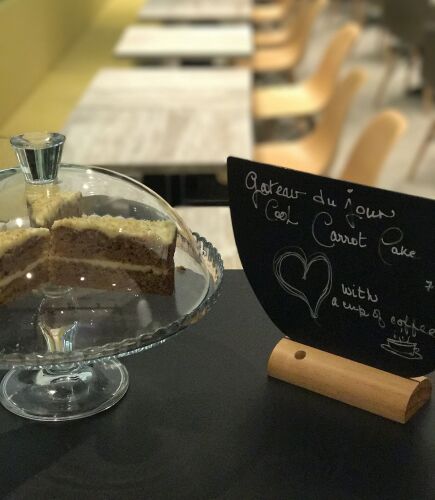 gateau du jour
Cool Carrot Cake
with
a cup of coffee